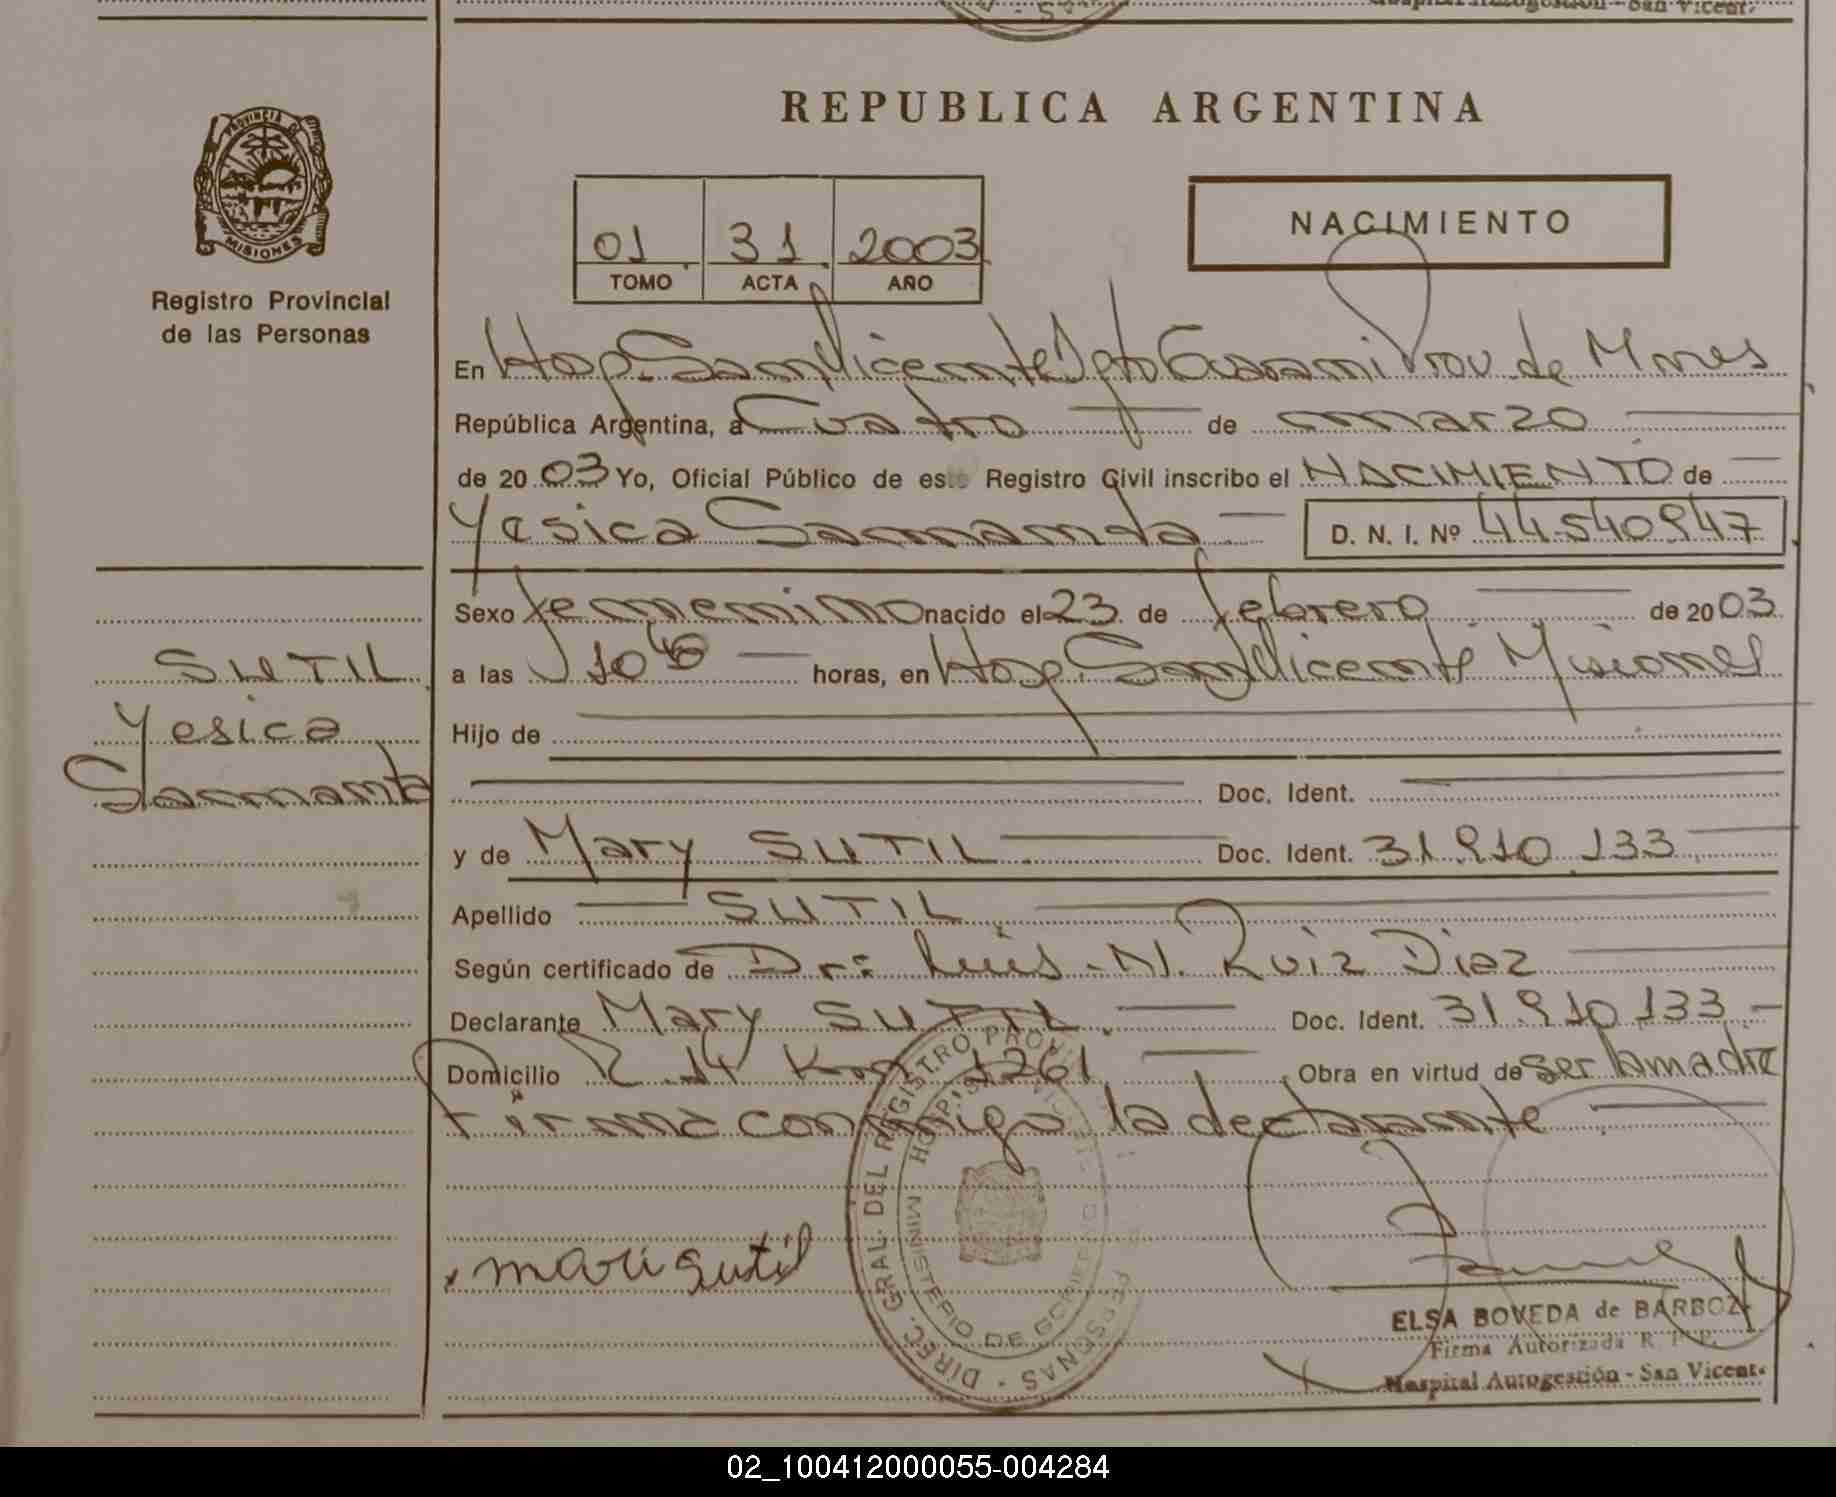 Hospital Autogestión - San Vicent.
PROVINCIA DE
MISIONES
Registro Provincial
de las Personas
REPUBLICA ARGENTINA
01 31 2003
TOMO ACTA AÑO
NACIMIENTO
En Hosp. San Vicente Dpto Guarani Prov. de Mnes
República Argentina, a Cuatro de marzo
de 20 03 Yo, Oficial Público de este Registro Civil inscribo el NACIMIENTO de
Yesica Sammanta D. N. I. Nº 44.540.947
Sexo femenino nacido el 23 de febrero de 20 03
a las 10 horas, en Hosp. San Vicente Misiones
Hijo de
Doc. Ident.
y de Mary SUTIL Doc. Ident. 31.910.133
Apellido SUTIL
Según certificado de Dr: Luis N. Ruiz Diaz
Declarante Mary SUTIL. Doc. Ident. 31.910.133.-
Domicilio R. 14 Km 1261 Obra en virtud de ser la madre
Firma conmigo la declarante
SUTIL
Yesica
Sammanta
mari sutil
DIREC. GRAL. DEL REGISTRO PROV. PERSONAS
MINISTERIO DE GOBIERNO
ELSA BOVEDA de BARBOZA
Firma Autorizada R. P. P.
Hospital Autogestión - San Vicente
02_100412000055-004284